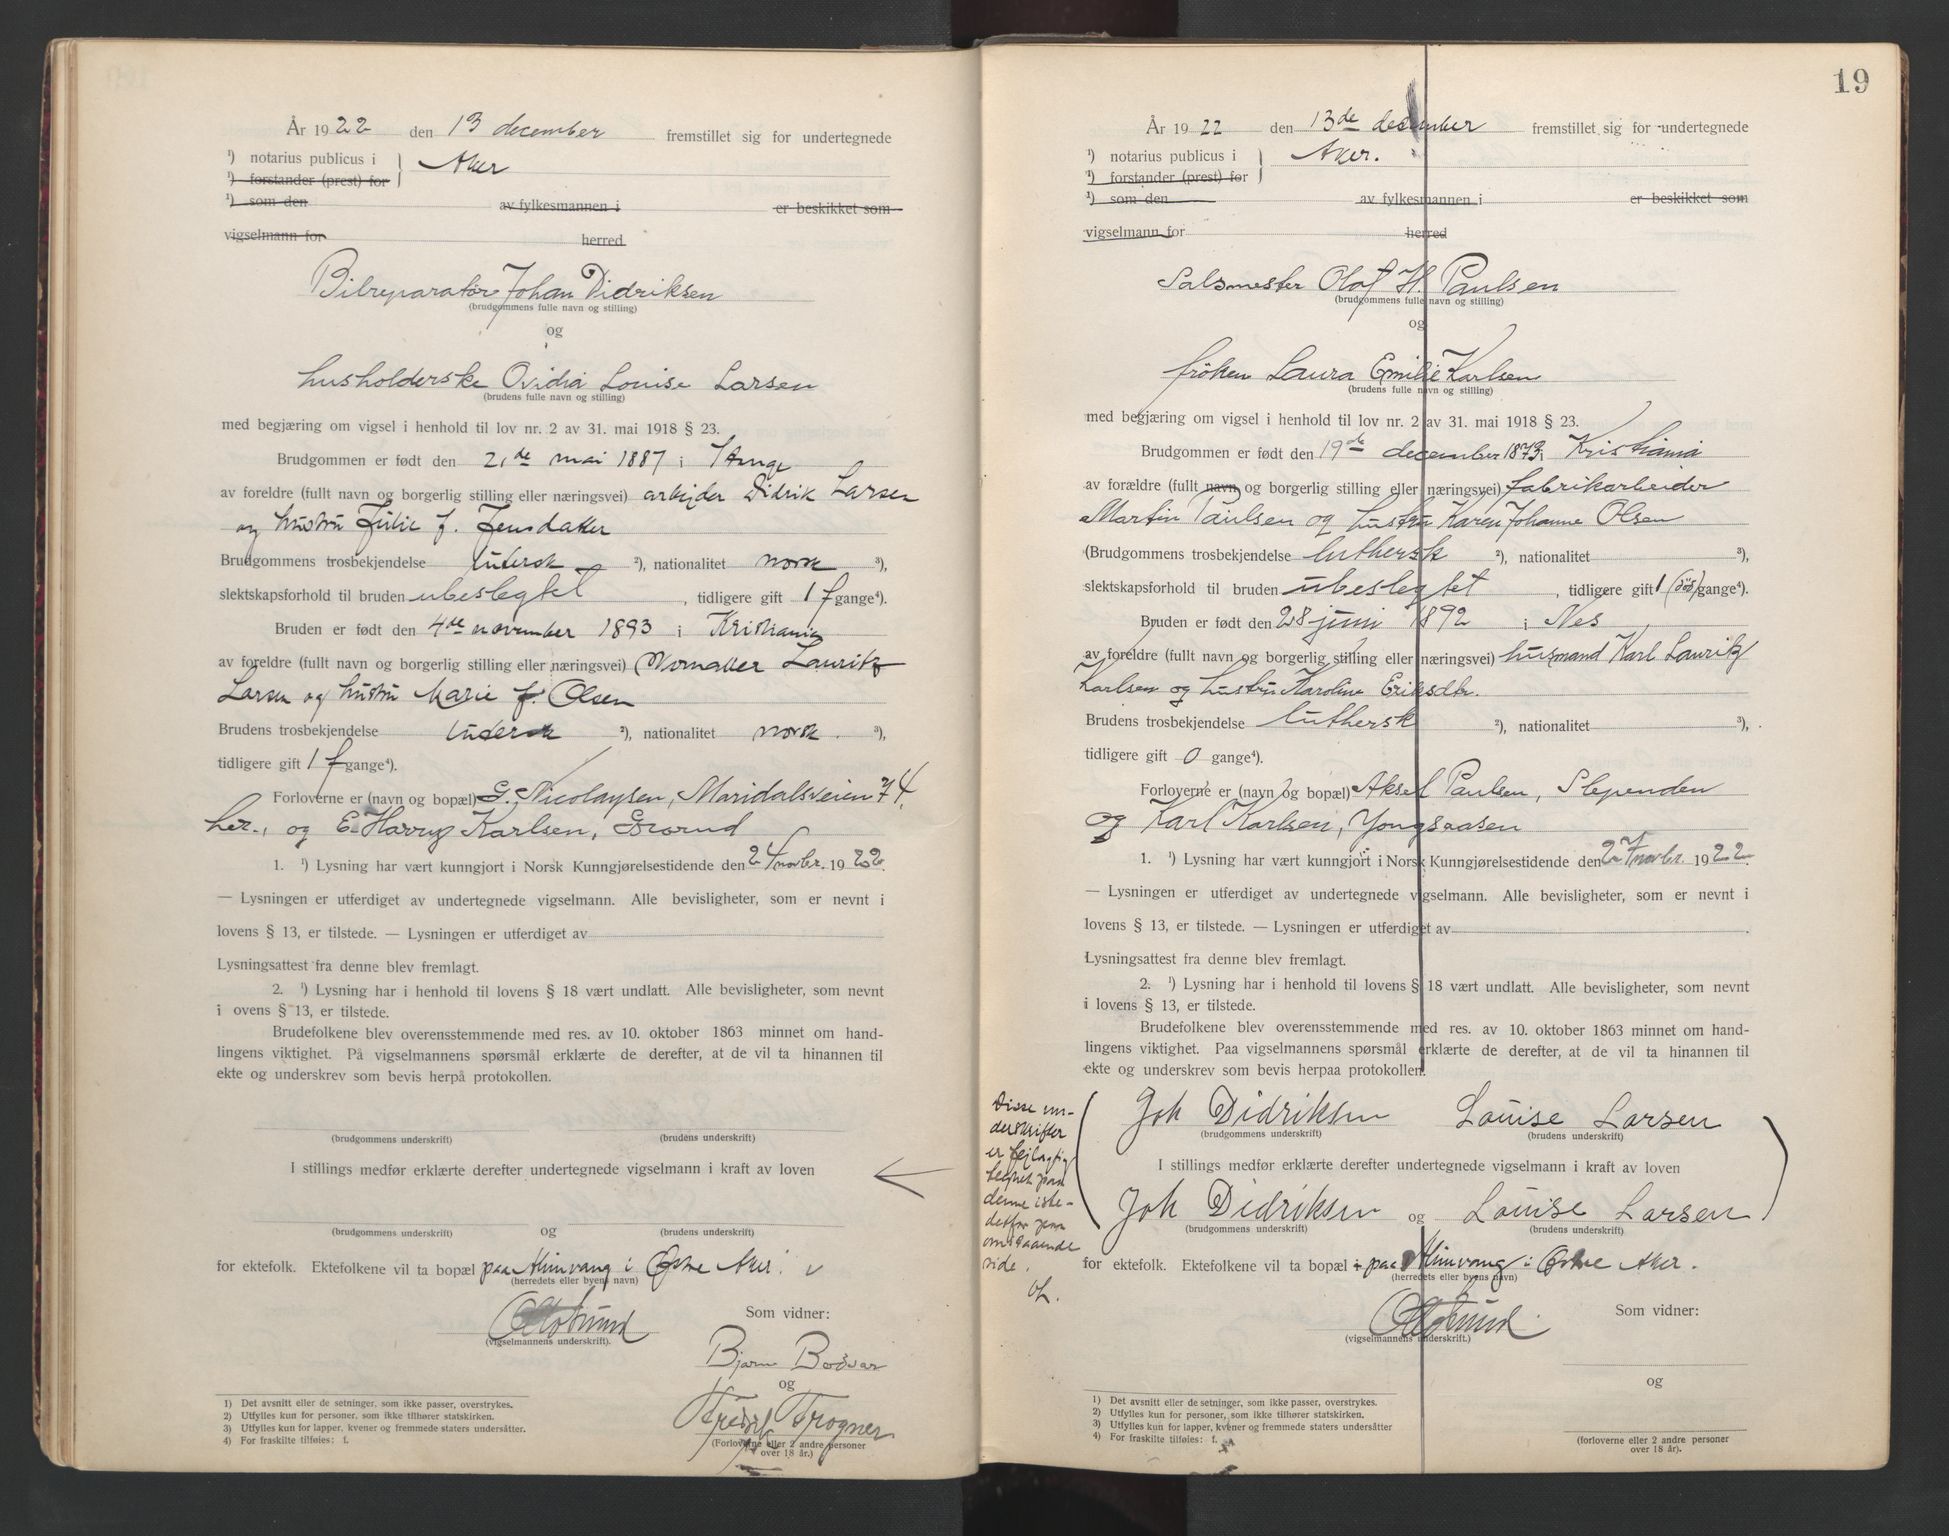 År 1922 den 13 december fremstillet sig for undertegnede
¹) notarius publicus i Aker
¹) forstander (prest) for
¹) som den av fylkesmannen i er beskikket som
vigselmann for herred
Bilreparatør Johan Didriksen
(brudgommens fulle navn og stilling)
og
husholderske Ovidia Louise Larsen
(brudens fulle navn og stilling)
med begjæring om vigsel i henhold til lov nr. 2 av 31. mai 1918 § 23.
Brudgommen er født den 21de mai 1887 i Stange
av foreldre (fullt navn og borgerlig stilling eller næringsvei) arbeider Didrik Larsen
og hustru Julie f. Jensdatter
Brudgommens trosbekjendelse lutersk ²), nationalitet norsk ³),
slektskapsforhold til bruden ubeslegtet, tidligere gift 1 f gange⁴).
Bruden er født den 4de november 1893 i Kristiania
av foreldre (fullt navn og borgerlig stilling eller næringsvei) Lauritz
Larsen og hustru Marie f. Olsen
Brudens trosbekjendelse lutersk ²), nationalitet norsk. ³),
tidligere gift 1 f gange⁴).
Forloverne er (navn og bopæl) G. Nicolaysen, Maridalsveien 74,
her., og E. Harry Karlsen, Grorud
1. ¹) Lysning har vært kunngjort i Norsk Kunngjørelsestidende den 24 novbr. 1922.
— Lysningen er utferdiget av undertegnede vigselmann. Alle bevisligheter, som er nevnt i
lovens § 13, er tilstede. — Lysningen er utferdiget av
Lysningsattest fra denne blev fremlagt.
2. ¹) Lysning har i henhold til lovens § 18 vært undlatt. Alle bevisligheter, som nevnt
i ovens § 13, er tilstede.
Brudefolkene blev overensstemmende med res. av 10. oktober 1863 minnet om hand-
lingens viktighet. På vigselmannens spørsmål erklærte de derefter, at de vil ta hinannen til
ekte og underskrev som bevis herpå protokollen.
(brudgommens underskrift) (brudens underskrift)
I stillings medfør erklærte derefter undertegnede vigselmann i kraft av loven
og
(brudgommens underskrift) (brudens underskrift)
for ektefolk. Ektefolkene vil ta bopæl paa Almvang i Østre Aker.
(herredets eller byens navn)
Som vidner:
(vigselmannens underskrift).
Bjarne Bodvar
og
Fredrik Frogner
(Forloverne eller 2 andre personer
over 18 år.)
1) Det avsnitt eller de setninger, som ikke passer, overstrykes.
2) Utfylles kun for personer, som ikke tilhører statskirken.
3) Utfylles kun for lapper, kvener og fremmede staters undersåtter.
4) For fraskilte tilføies: f.
19
År 1922 den 13de december fremstillet sig for undertegnede
¹) notarius publicus i Aker.
¹) forstander (prest) for
¹) som den av fylkesmannen i er beskikket som
vigselmann for herred
Salsmester Olaf H. Paulsen
(brudgommens fulle navn og stilling)
og
frøken Laura Emilie Karlsen
(brudens fulle navn og stilling)
med begjæring om vigsel i henhold til lov nr. 2 av 31. mai 1918 § 23.
Brudgommen er født den 19de december 1873 i Kristiania
av forældre (fullt navn og borgerlig stilling eller næringsvei) fabrikarbeider
Martin Paulsen og hustru Karen Johanne Olsen
(Brudgommens trosbekjendelse luthersk ²), nationalitet ³),
slektskapsforhold til bruden ubeslegtet, tidligere gift 1 (død) gange⁴).
Bruden er født den 28 juni 1892 i Nes
av foreldre (fullt navn og borgerlig stilling eller næringsvei) husmand Karl Lauritz
Karlsen og hustru Karoline Eriksdtr.
Brudens trosbekjendelse luthersk ²), nationalitet ³),
tidligere gift 0 gange⁴).
Forloverne er (navn og bopæl) Aksel Paulsen, Slependen
og Karl Karlsen, Yongsaasen
1. ¹) Lysning har vært kunngjort i Norsk Kunngjørelsestidende den 27 novbr. 1922.
— Lysningen er utferdiget av undertegnede vigselmann. Alle bevisligheter, som er nevnt i
lovens § 13, er tilstede. — Lysningen er utferdiget av
Lysningsattest fra denne blev fremlagt.
2. ¹) Lysning har i henhold til lovens § 18 vært undlatt. Alle bevisligheter, som nevnt
i lovens § 13, er tilstede.
Brudefolkene blev overensstemmende med res. av 10. oktober 1863 minnet om hand-
lingens viktighet. Paa vigselmannens spørsmål erklærte de derefter, at de vil ta hinannen til
ekte og underskrev som bevis herpaa protokollen.
Disse un-
derskrifter
er fejlagtig
tegnet paa
denne iste-
detfor paa
omstaaende
side.
OL.
Joh Didriksen Louise Larsen
(brudgommens underskrift) (brudens underskrift)
I stillings medfør erklærte derefter undertegnede vigselmann i kraft av loven
Joh Didriksen og Louise Larsen
(brudgommens underskrift) (brudens underskrift)
for ektefolk. Ektefolkene vil ta bopæl i paa Almvang i Østre Aker.
(herredets eller byens navn)
Som vidner:
(vigselmannens underskrift.)
og
(forloverne eller 2 andre personer
over 18 år).
1) Det avsnitt eller de setninger, som ikke passer, overstrykes.
2) Utfylles kun for personer, som ikke tilhører statskirken.
3) Utfylles kun for lapper, kvener og fremmede staters undersåtter
4) For fraskilte tilføies: f.